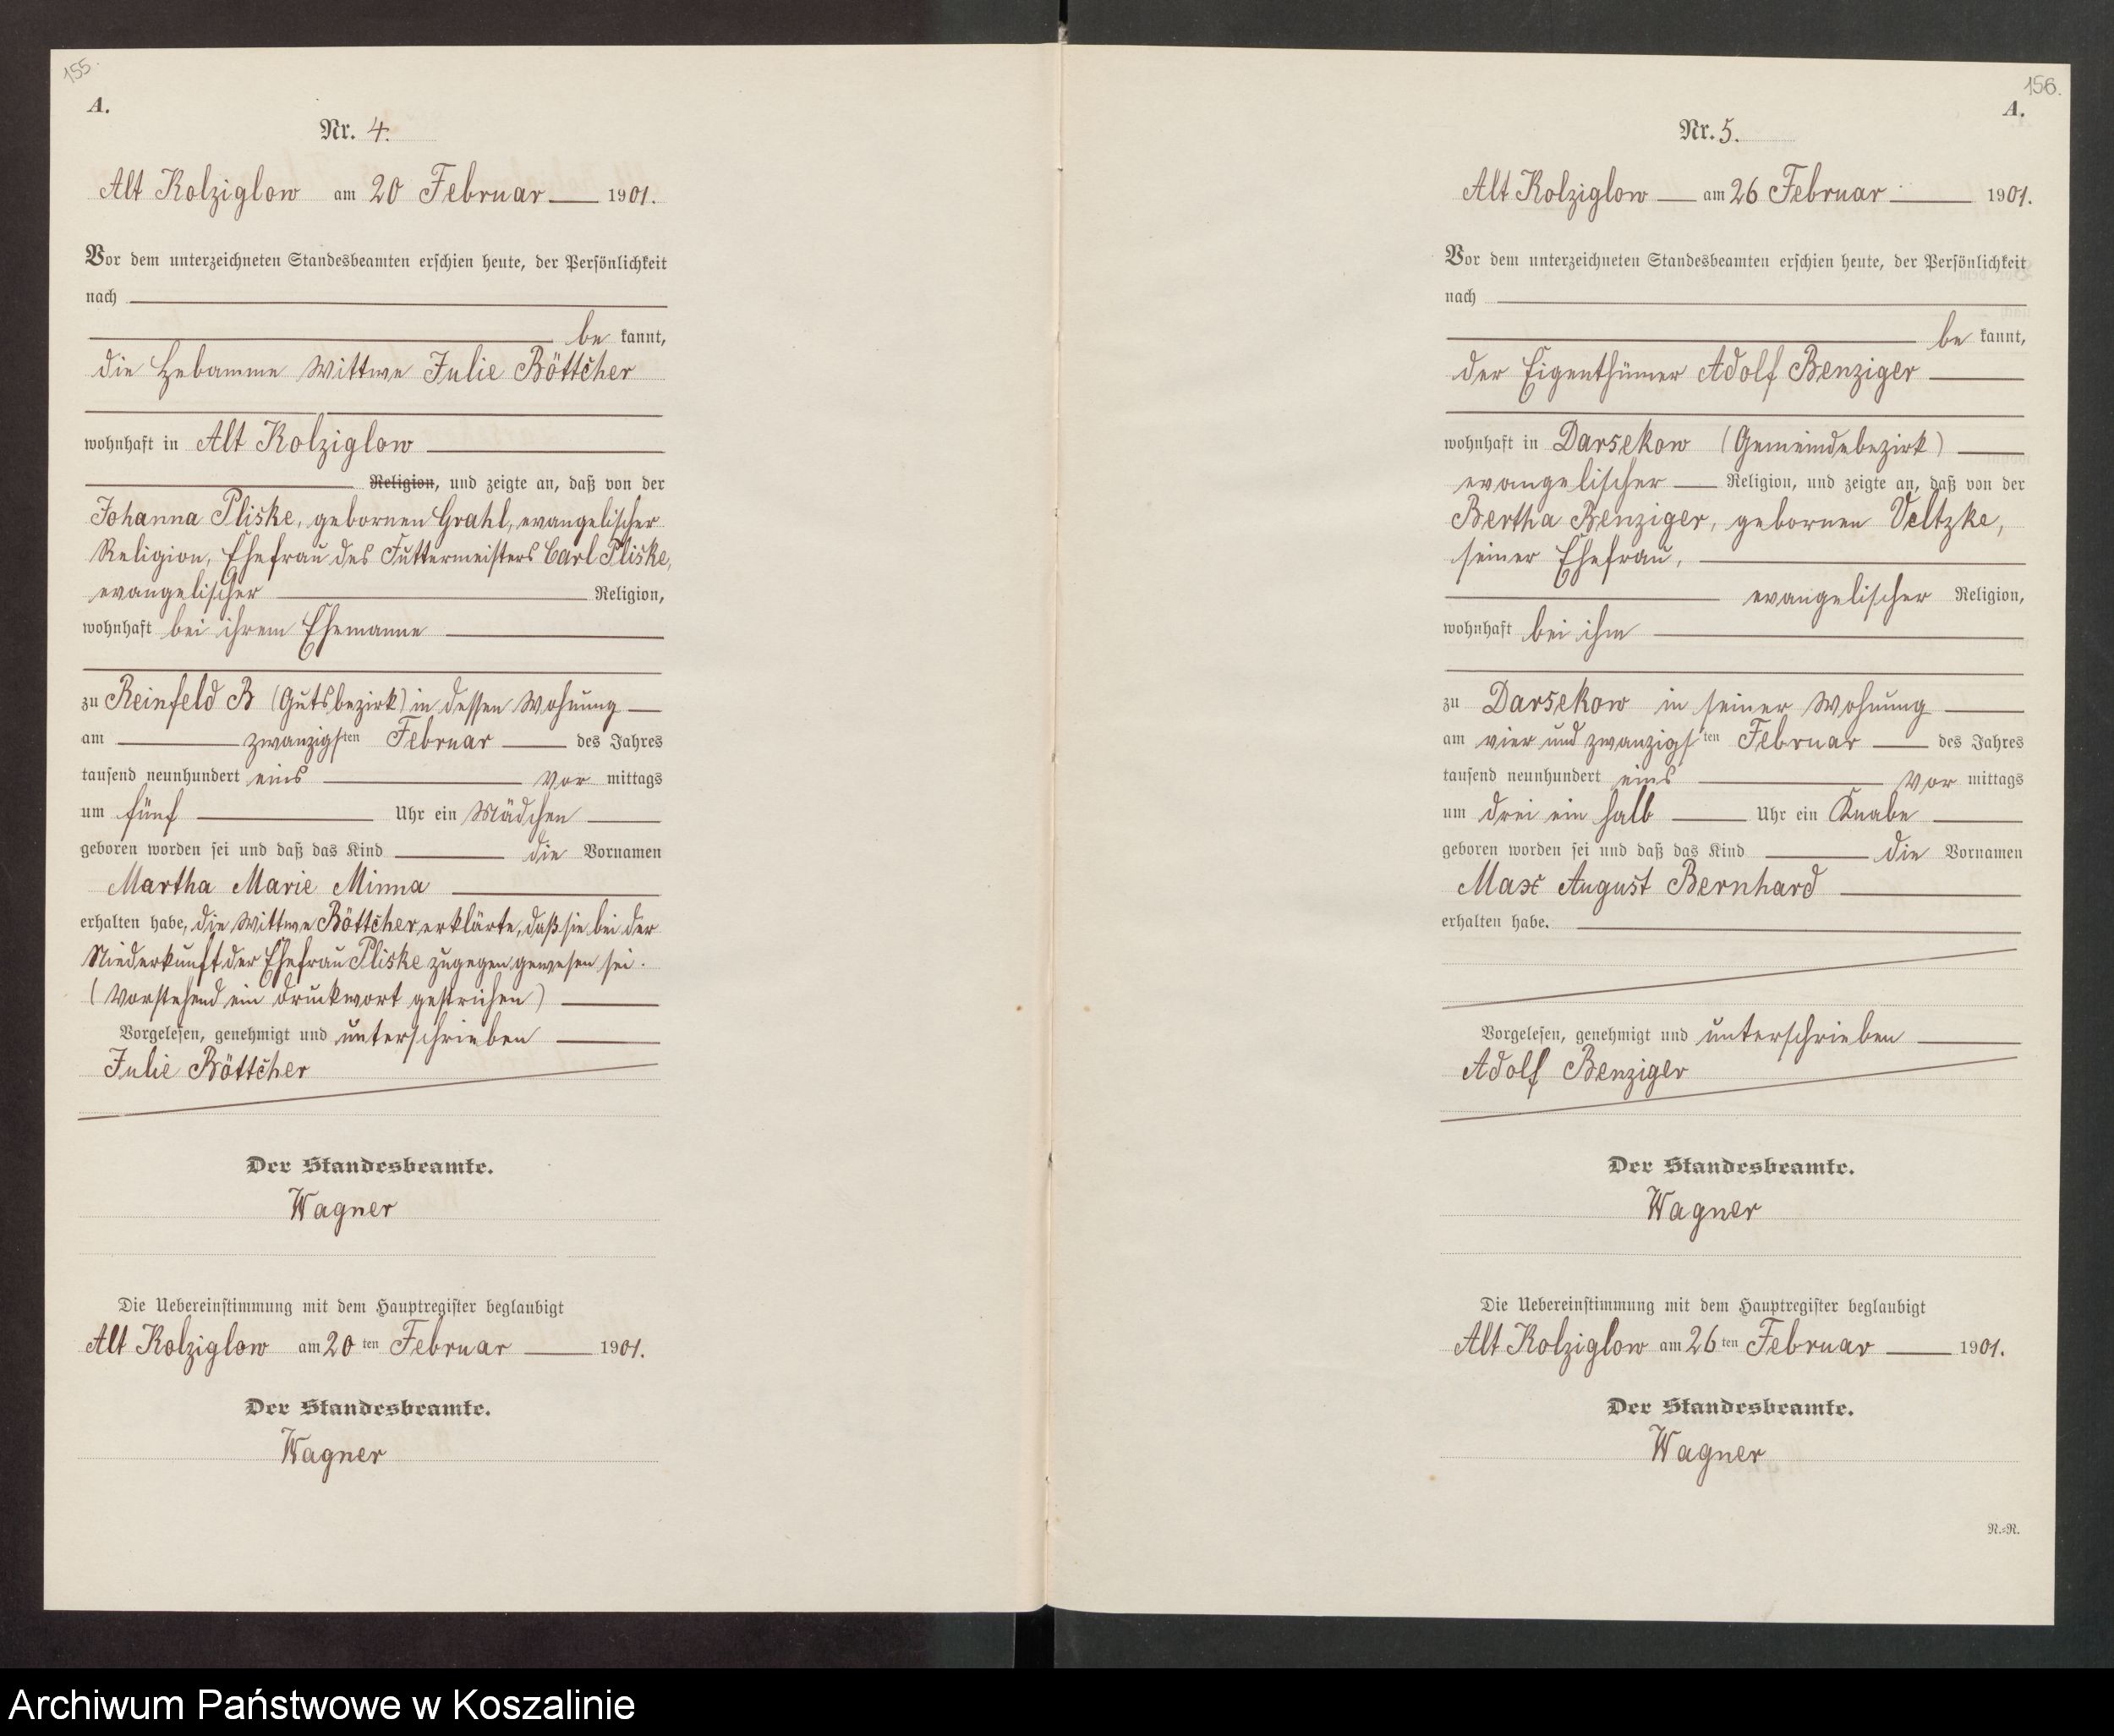 155.
A.
Nr. 4.
Alt Kolziglow am 20 Februar 1901.
Vor dem unterzeichneten Standesbeamten erschien heute, der Persönlichkeit
nach
be kannt,
die Hebamme Wittwe Julie Böttcher
wohnhaft in Alt Kolziglow
Religion, und zeigte an, daß von der
Johanna Pliske, gebornen Grahl, evangelischer
Religion, Ehefrau des Futtermeisters Carl Pliske,
evangelischer Religion,
wohnhaft bei ihrem Ehemanne
zu Reinfeld B (Gutsbezirk) in dessen Wohnung
am zwanzigsten Februar des Jahres
tausend neunhundert eins Vor mittags
um fünf Uhr ein Mädchen
geboren worden sei und daß das Kind die Vornamen
Martha Marie Minna
erhalten habe, die Wittwe Böttcher erklärte, daß sie bei der
Niederkunft der Ehefrau Pliske zugegen gewesen sei.
(Vorstehend ein Druckwort gestrichen)
Vorgelesen, genehmigt und unterschrieben
Julie Böttcher
Der Standesbeamte.
Wagner
Die Uebereinstimmung mit dem Hauptregister beglaubigt
Alt Kolziglow am 20 ten Februar 1901.
Der Standesbeamte.
Wagner
156.
A.
Nr. 5.
Alt Kolziglow am 26 Februar 1901.
Vor dem unterzeichneten Standesbeamten erschien heute, der Persönlichkeit
nach
be kannt,
der Eigenthümer Adolf Benziger
wohnhaft in Darsekow (Gemeindebezirk)
evangelischer Religion, und zeigte an, daß von der
Bertha Benziger, gebornen Veltzke,
seiner Ehefrau,
evangelischer Religion,
wohnhaft bei ihm
zu Darsekow in seiner Wohnung
am vier und zwanzigsten Februar des Jahres
tausend neunhundert eins Vor mittags
um drei ein halb Uhr ein Knabe
geboren worden sei und daß das Kind die Vornamen
Max August Bernhard
erhalten habe.
Vorgelesen, genehmigt und unterschrieben
Adolf Benziger
Der Standesbeamte.
Wagner
Die Uebereinstimmung mit dem Hauptregister beglaubigt
Alt Kolziglow am 26 ten Februar 1901.
Der Standesbeamte.
Wagner
N.=R.
Archiwum Państwowe w Koszalinie